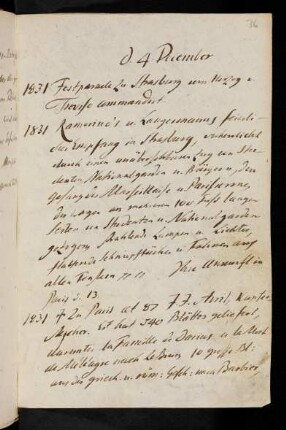 36
d 4 December
1831 Festparade zu Strasburg vom Herzog v.
Treviso commandirt
1831 Ramorino's u. Langermanns feierli-
cher Empfang in Strasburg, verherrlicht
durch einen unübersehbaren Zug von Stu-
denten Nationalgarden u. Bürgern, den
Gesang der Marseillaise u. Parisienne,
der Wagen an mehrern 100 Fuss langen
Seilen von Studenten u. Nationalgarden
gezogen, Lampen u. Lichter,
flatternde Schnupftücher u. Fahnen aus
allen Fenstern Ihre Ankunft in
Paris d. 13.
1831 † zu Paris aet 87 J. J. Avril, Kupfer-
stecher. Er hat 540 Blätter geliefert,
darunter la Famille de Darius u. la Mort
de Méléagre nach Le Brun 10 grosse Bl:
aus der griech. u. röm: Gesch: nach Barbier